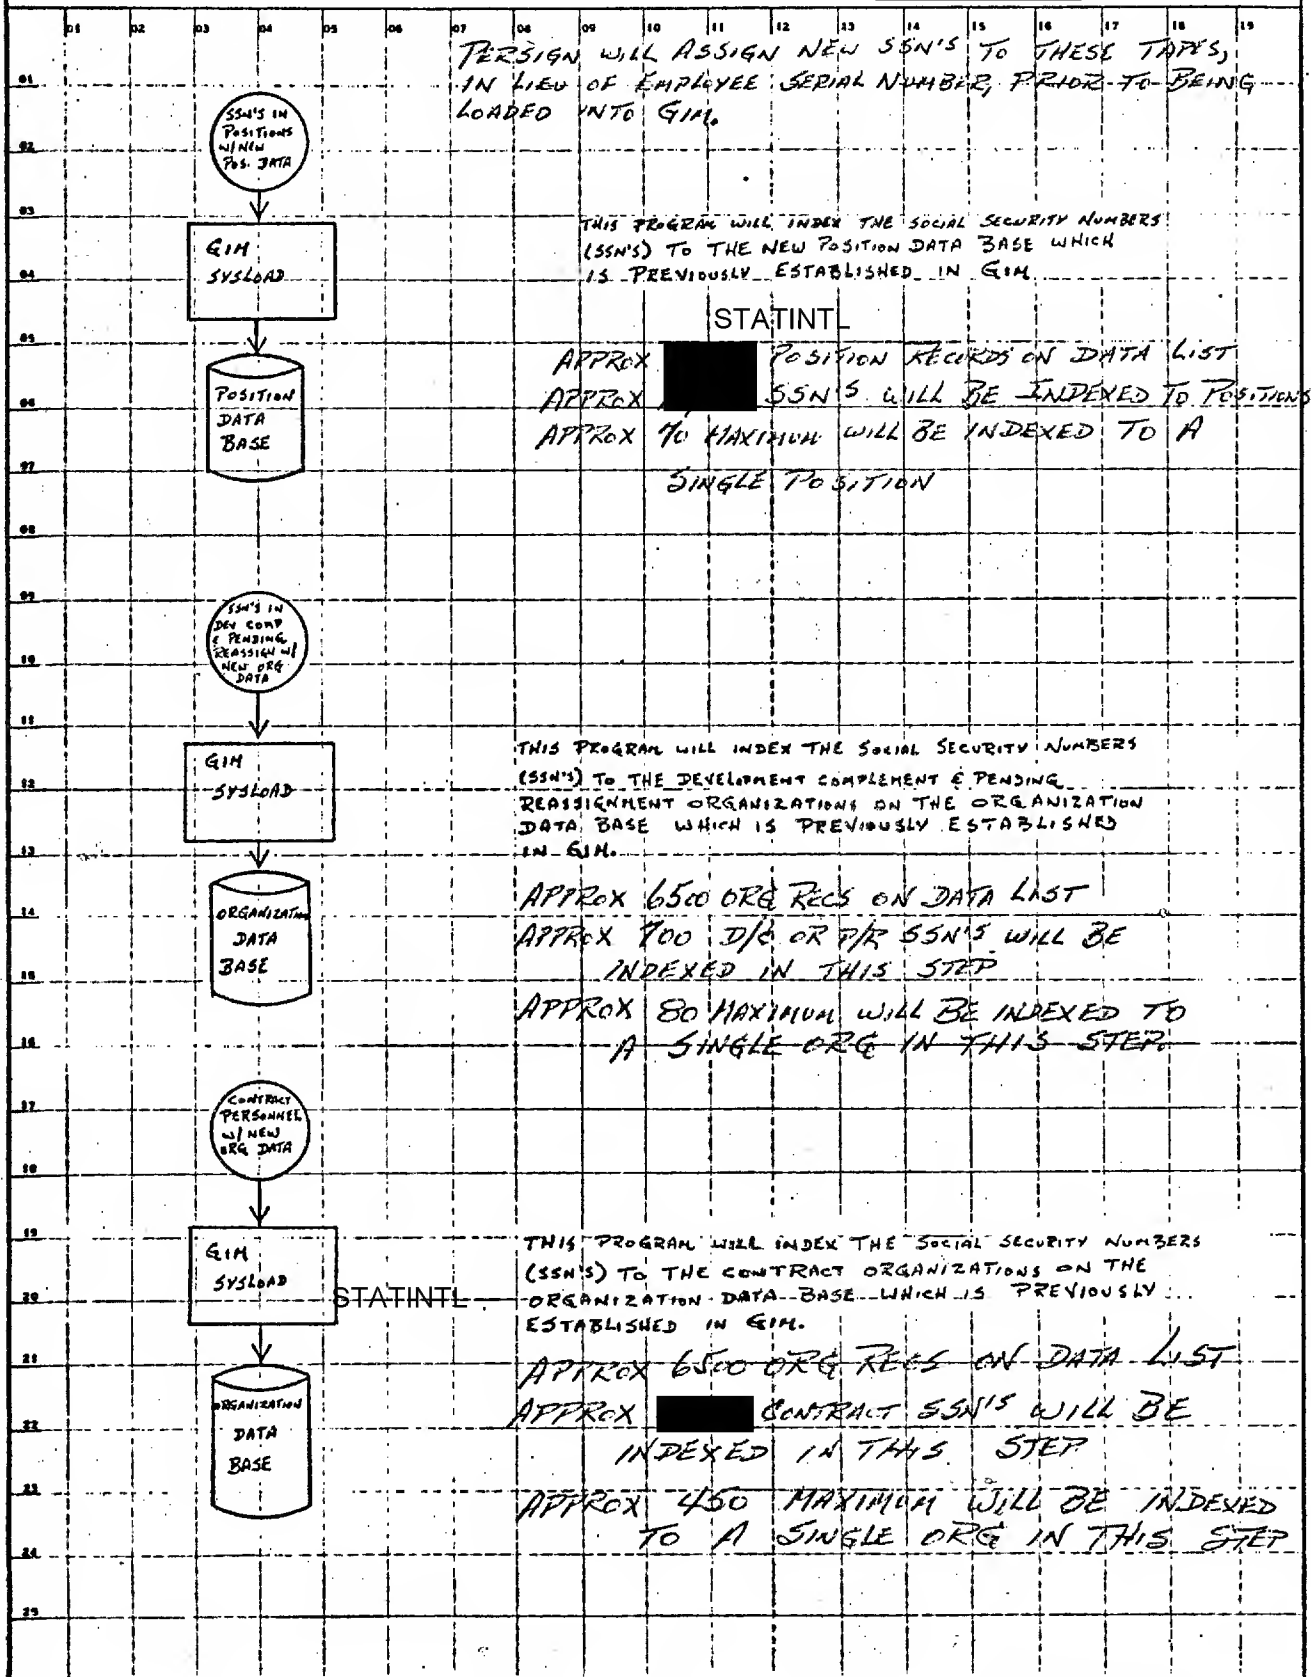 01 02 03 04 05 06 07 08 09 10 11 12 13 14 15 16 17 18 19
PERSIGN WILL ASSIGN NEW SSN'S TO THESE TAPES,
IN LIEU OF EMPLOYEE SERIAL NUMBER, PRIOR TO BEING
LOADED INTO GIM.
01
SSN'S IN
POSITIONS
W/NEW
POS. DATA
02
03
GIM
SYSLOAD
THIS PROGRAM WILL INDEX THE SOCIAL SECURITY NUMBERS
(SSN'S) TO THE NEW POSITION DATA BASE WHICH
IS PREVIOUSLY ESTABLISHED IN GIM
04
STATINTL
05
POSITION
DATA
BASE
APPROX POSITION RECORDS ON DATA LIST
APPROX SSN'S WILL BE INDEXED TO POSITIONS
APPROX 70 MAXIMUM WILL BE INDEXED TO A
SINGLE POSITION
06
07
08
09
SSN'S IN
DEV COMP
& PENDING
REASSIGN W/
NEW ORG
DATA
10
11
GIM
SYSLOAD
THIS PROGRAM WILL INDEX THE SOCIAL SECURITY NUMBERS
(SSN'S) TO THE DEVELOPMENT COMPLEMENT & PENDING
REASSIGNMENT ORGANIZATIONS ON THE ORGANIZATION
DATA BASE WHICH IS PREVIOUSLY ESTABLISHED
IN GIM.
12
13
ORGANIZATION
DATA
BASE
APPROX 6500 ORG RECS ON DATA LIST
APPROX 700 D/C OR P/R SSN'S WILL BE
INDEXED IN THIS STEP
APPROX 80 MAXIMUM WILL BE INDEXED TO
A SINGLE ORG IN THIS STEP.
14
15
16
17
CONTRACT
PERSONNEL
W/ NEW
ORG DATA
18
19
GIM
SYSLOAD
STATINTL
THIS PROGRAM WILL INDEX THE SOCIAL SECURITY NUMBERS
(SSN'S) TO THE CONTRACT ORGANIZATIONS ON THE
ORGANIZATION DATA BASE WHICH IS PREVIOUSLY
ESTABLISHED IN GIM.
20
21
ORGANIZATION
DATA
BASE
APPROX 6500 ORG RECS ON DATA LIST
APPROX CONTRACT SSN'S WILL BE
INDEXED IN THIS STEP
APPROX 450 MAXIMUM WILL BE INDEXED
TO A SINGLE ORG IN THIS STEP
22
23
24
25